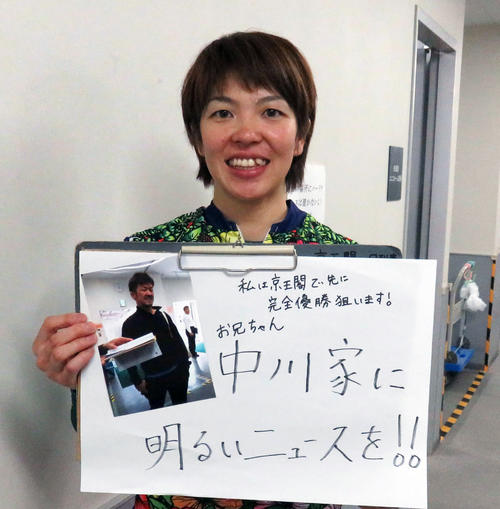 私は京王閣で、先に
完全優勝狙います!
お兄ちゃん
中川家に
明るいニュースを!!